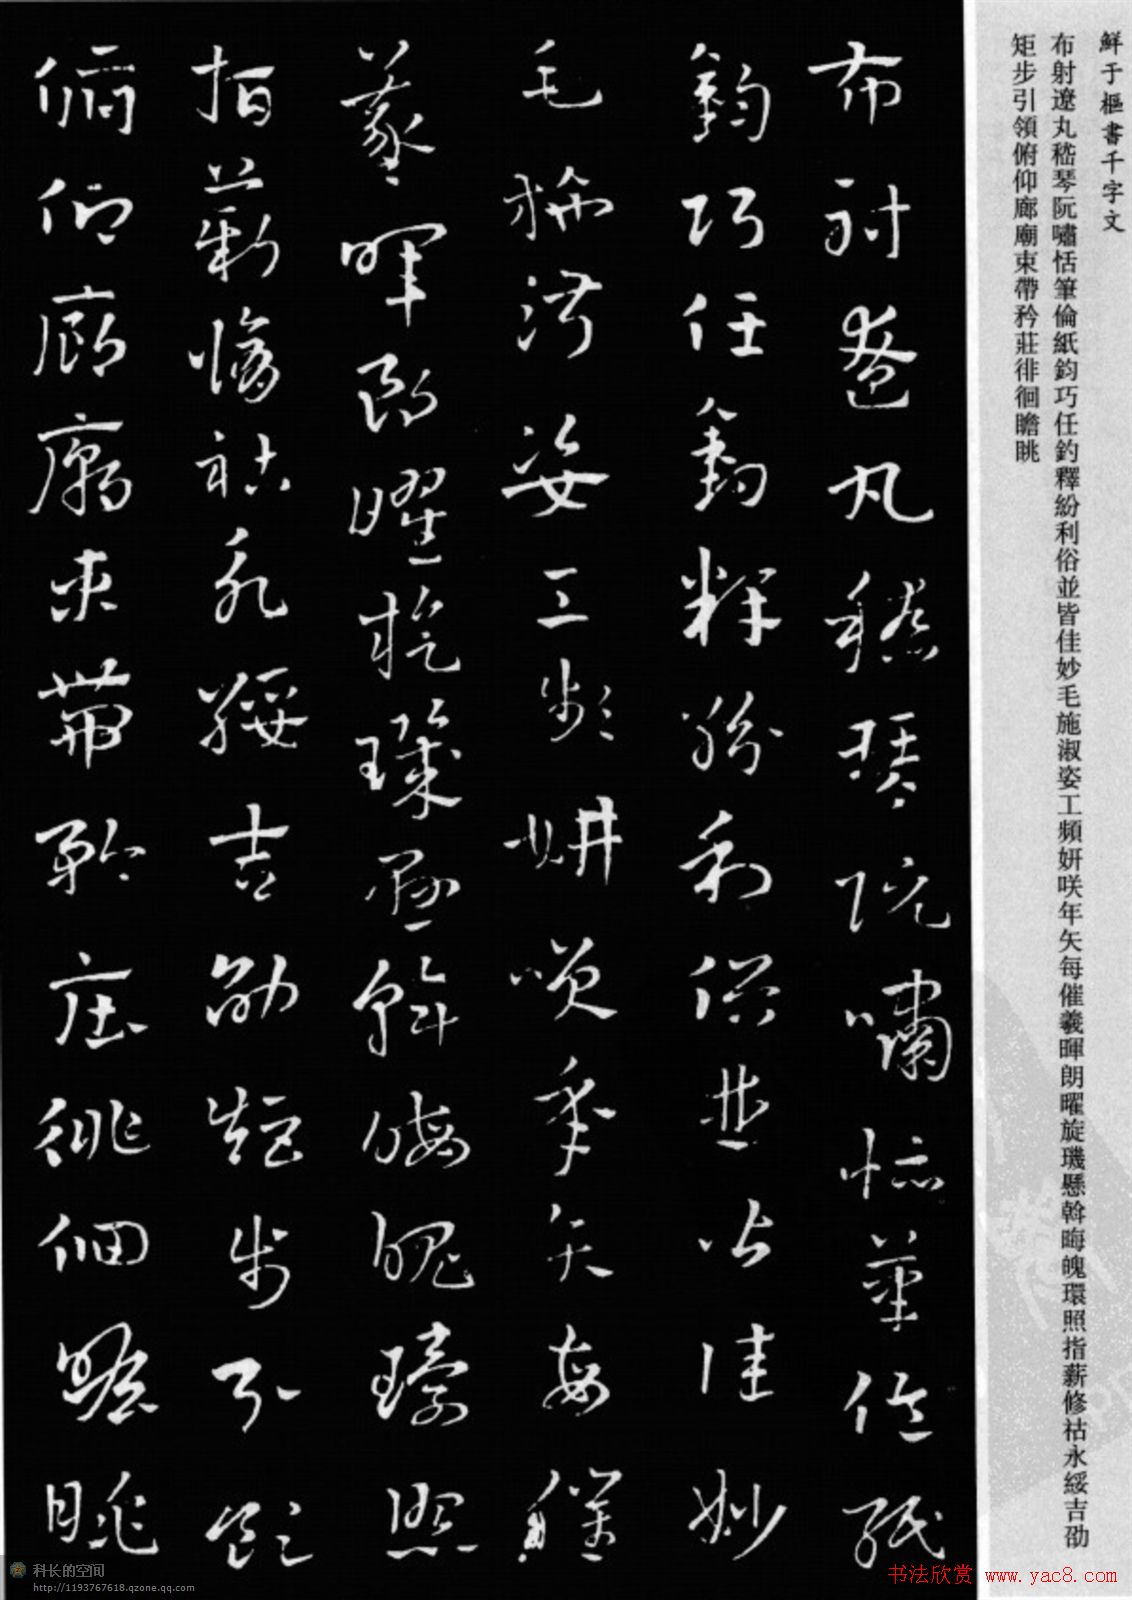 鮮于樞書千字文
布射遼丸嵇琴阮嘯恬筆倫紙鈞巧任釣釋紛利俗並皆佳妙毛施淑姿工頻妍咲年矢每催羲暉朗曜旋璣懸斡晦魄環照指薪修祜永綏吉劭
矩步引領俯仰廊廟束帶矜莊徘徊瞻眺
布射遼丸嵇琴阮嘯恬筆倫紙
鈞巧任釣釋紛利俗並皆佳妙
毛施淑姿工頻妍咲年矢每催
羲暉朗曜旋璣懸斡晦魄環照
指薪修祜永綏吉劭矩步引領
俯仰廊廟束帶矜莊徘徊瞻眺
科长的空间
http://1193767618.qzone.qq.com
书法欣赏 www.yac8.com